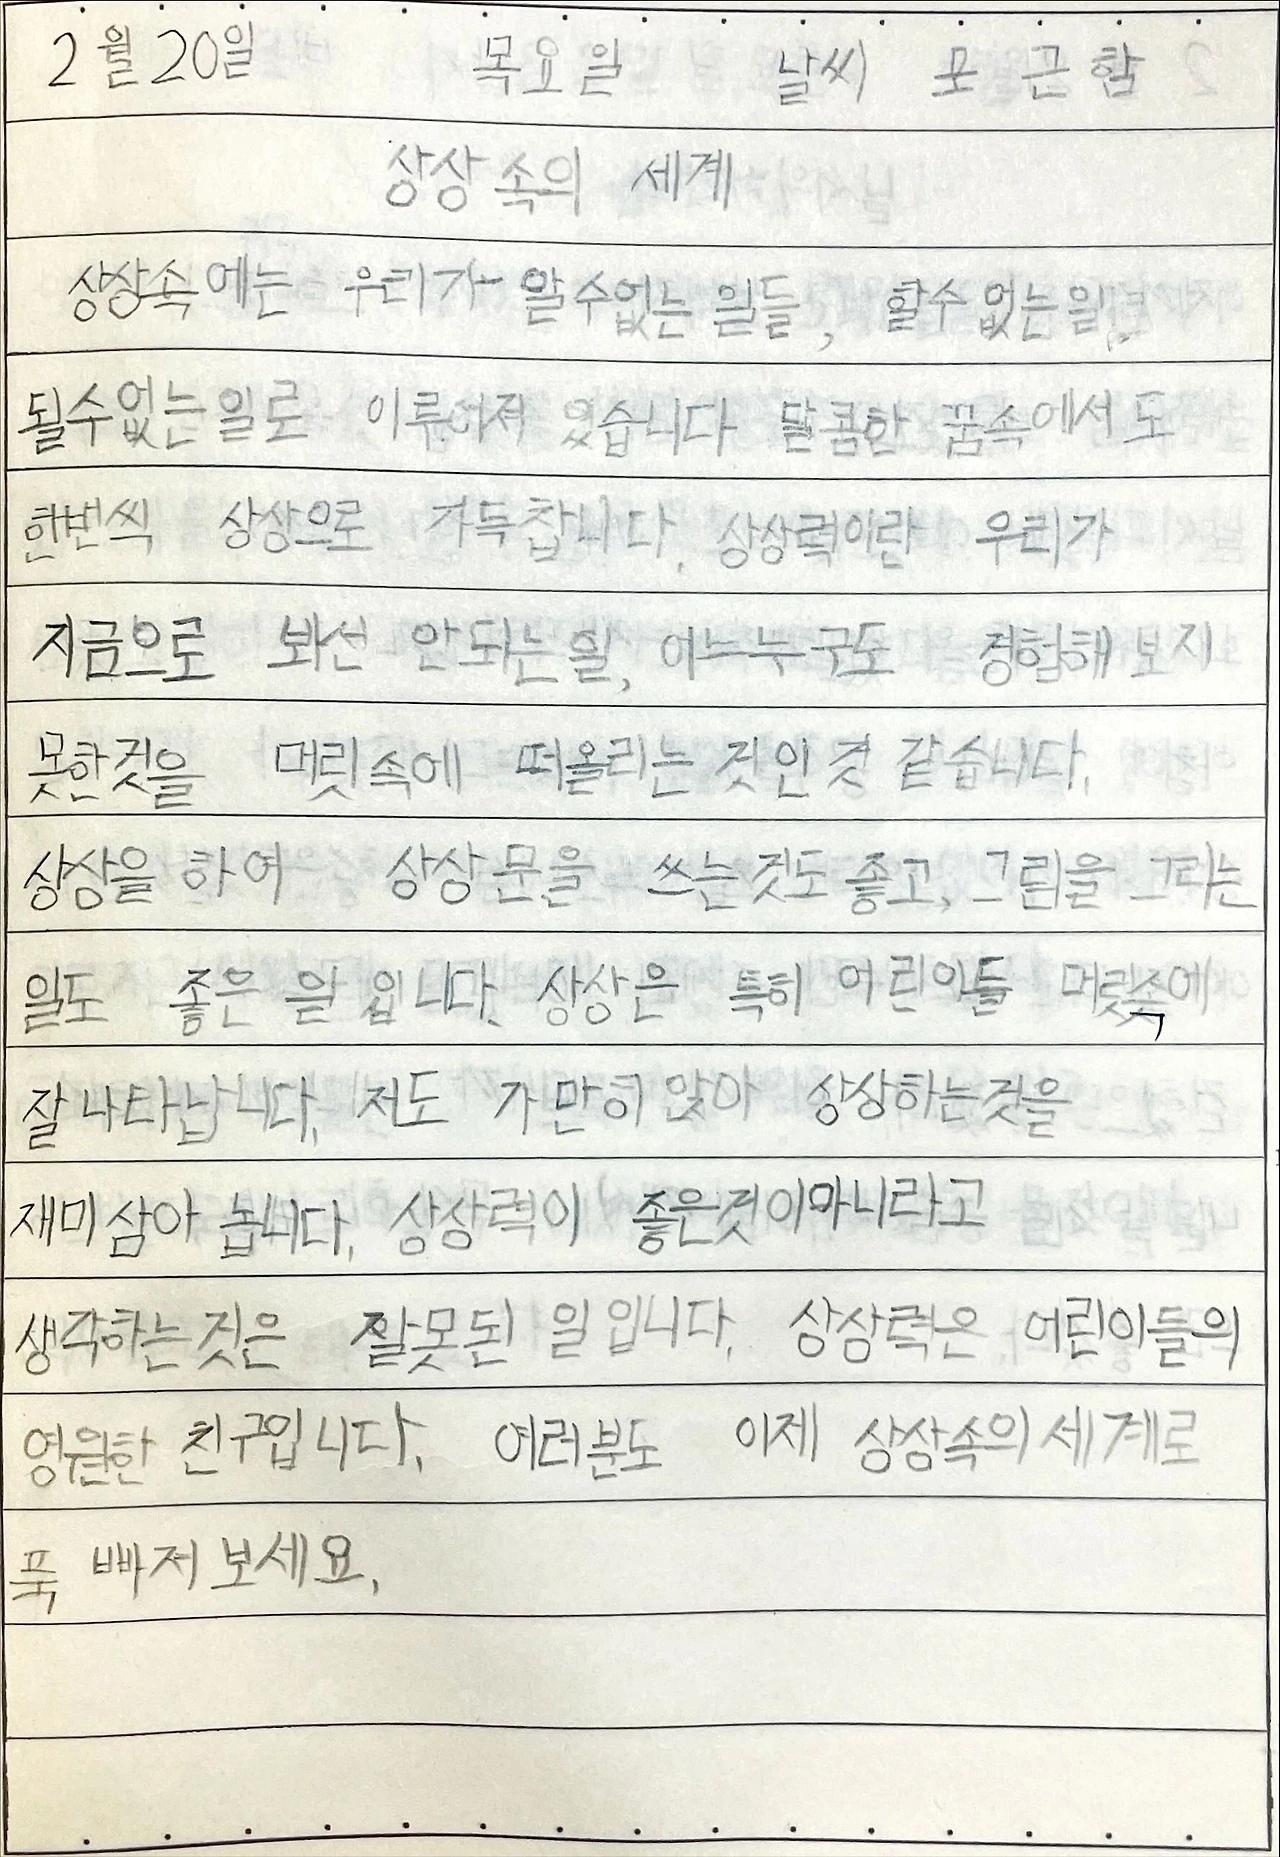 2월 20일 목요일 날씨 포근함
상상 속의 세계
상상속에는 우리가 알 수없는 일들, 할수 없는일,
될수없는 일로 이루어져 있습니다 달콤한 꿈속에서도
한번씩 상상으로 가득찹니다. 상상력이란 우리가
지금으로 봐선 안되는 일, 어느누구도 경험해 보지
못한것을 머릿속에 떠올리는 것인 것 같습니다.
상상을 하여 상상문을 쓰는것도 좋고, 그림을 그리는
일도 좋은 일 입니다. 상상은 특히 어린이들 머릿속에
잘 나타납니다. 저도 가만히 앉아 상상하는것을
재미 삼아 봅니다. 상상력이 좋은것이아니라고
생각하는것은 잘못된 일입니다. 상상력은 어린이들의
영원한 친구입니다. 여러분도 이제 상상속의 세계로
푹 빠저 보세요.